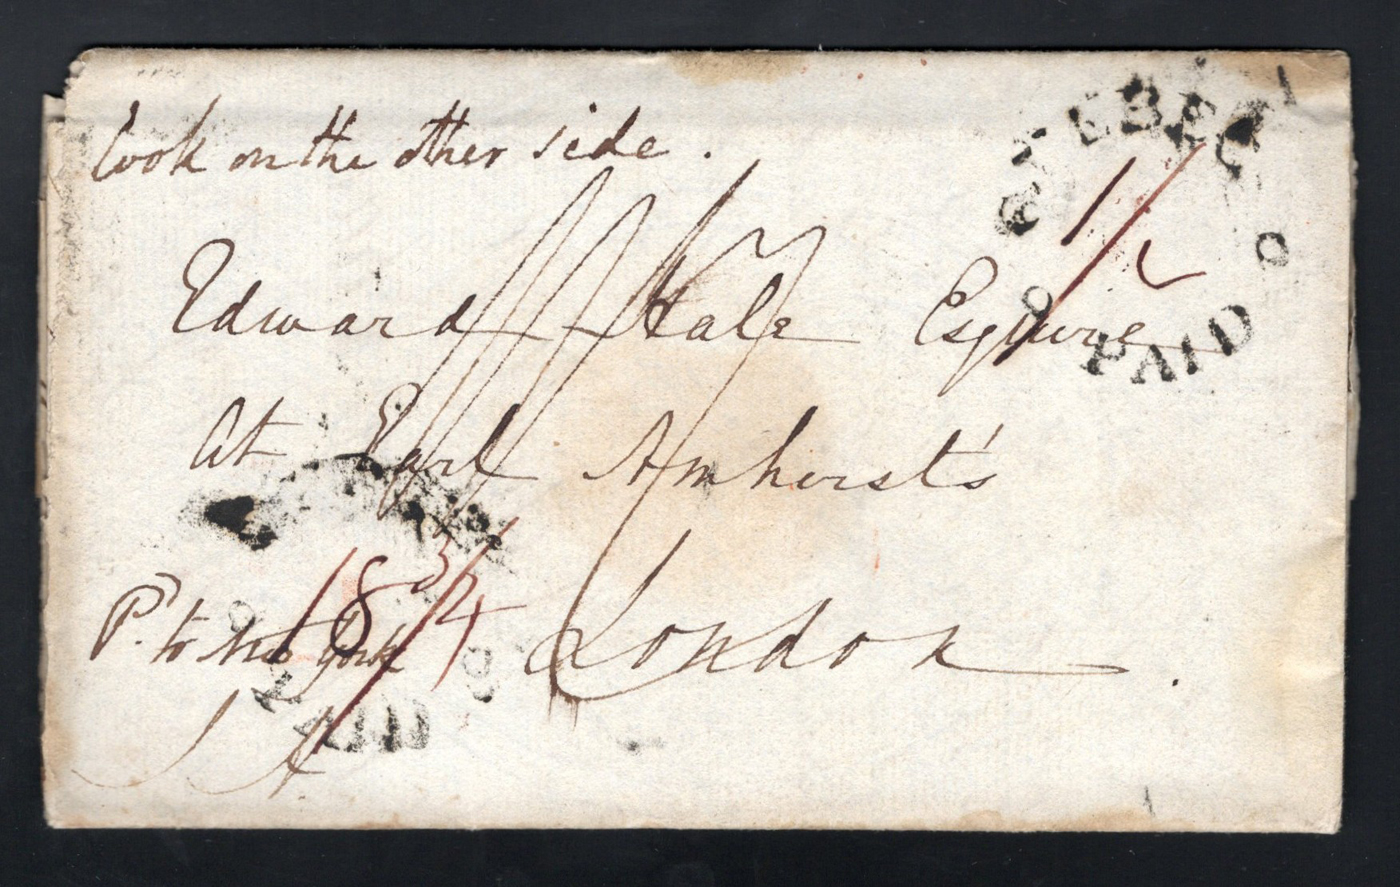 look on the other side.
QUEBEC
1/2
PAID
Edward Hale Esquire
At Earl Amherst's
18 3/4
Pd. to New York
London.
PAID